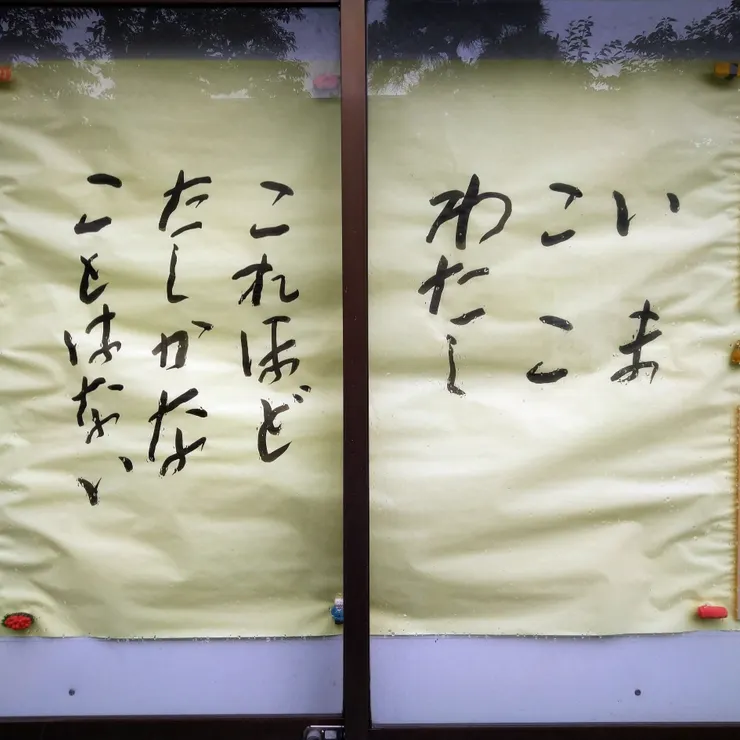 いま
ここ
わたし
これほど
たしかな
ことはない